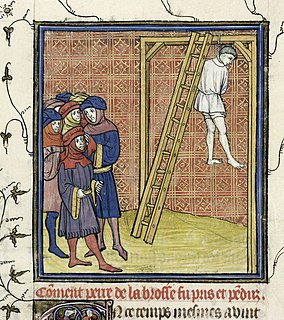 Coment pierre de la broffe fu pris et pendu.
En ce temps mesmes avint